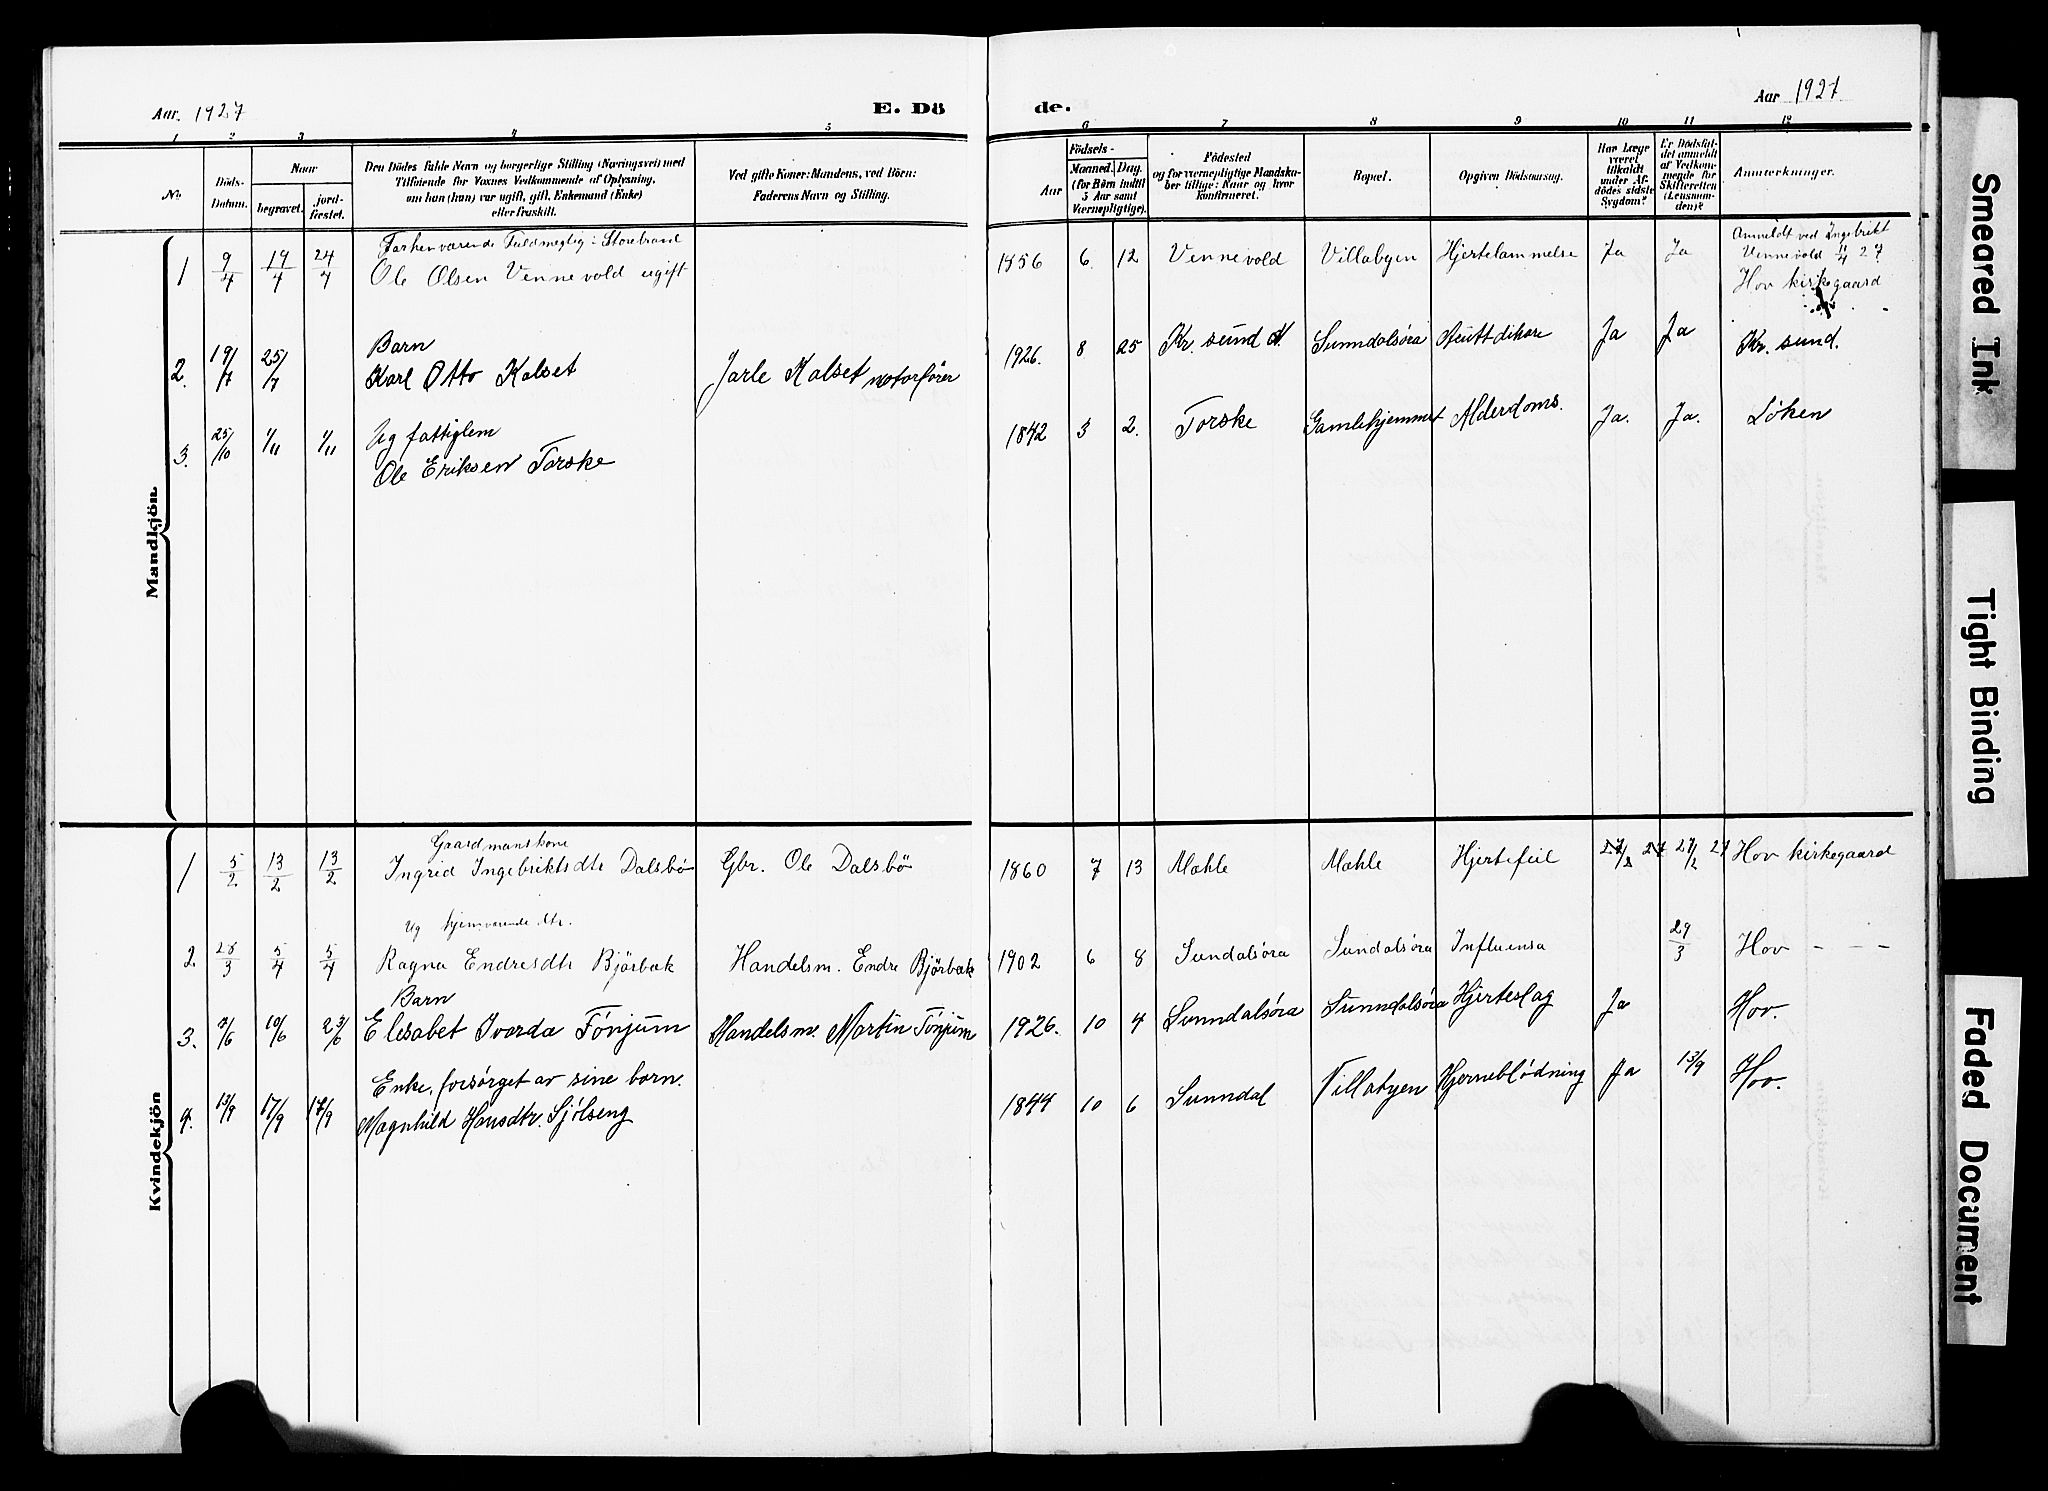 Aar. 1927
E. Dö
1 2 3 4 5
No.
Döds-Datum.
Naar
begravet.
jord-fæstet.
Den Dödes fulde Navn og borgerlige Stilling (Næringsvei) med
Tilföiende for Voxnes Vedkommende af Oplysning,
om han (hun) var ugift, gift, Enkemand (Enke)
eller fraskilt.
Ved gifte Koner: Mandens, ved Börn:
Faderens Navn og Stilling.
Mandkjön.
Forhenværende Fuldmegtig i Storebrand
1 9/4 19/4 24/4 Ole Olsen Vennevold ugift
Barn
2. 19/7 25/7 Karl Otto Kalset Jarle Kalset motorfører
Ug fattiglem
3. 25/10 1/11 1/11 Ole Eriksen Torske
Kvindekjön
Gaardmanskone
1 5/2 13/2 13/2 Ingrid Ingebriktsdtr Dalsbö Gbr. Ole Dalsbö
Ug hjemværende dtr.
2 28/3 5/4 5/4 Ragna Endresdtr Bjørbak Handelsm. Endre Bjørbak
Barn
3. 10/6 Elisabet Ivarda Tønjum Handelsm. Martin Tønjum
Enke, forsørget av sine born.
4. 13/9 17/9 17/9 Magnhild Hansdtr. Sjølseng
de.
Aar 1927
6 7 8 9 10 11 12
Aar
Födsels-
Maaned. Dag.
(for Börn indtil
5 Aar samt
Værnepligtige).
Födested
og for værnepligtige Mandskaber tillige: Naar og hvor
konfirmeret.
Bopæl.
Opgiven Dödsaarsag.
Har Læge
været
tilkaldt
under Afdödes sidste
Sygdom?
Er Dödsfaldet anmeldt
af Vedkommende for
Skifteretten
(Lensmanden)?
Anmærkninger.
1856 6. 12 Vennevold Villabyen Hjertelammelse Ja Ja Anmeldt ved Ingebrikt
Vennevold 11/4 27
Hov kirkegaard
1926. 8 25 Kr. sund N. Sunndalsøra Ja Ja Kr. sund.
1842 3 2. Torske Gamlehjemmet Alderdoms. Ja. Ja. Løken
1860 7 13 Mæhle Mæhle Hjertefeil 27/2 27 27/2 27 Hov kirkegaard
1902 6 8 Sundalsøra Sundalsøra Influensa 29/3 Hov - - -
1926. 10 4 Sunndalsøra Sunndalsøra Hjerteslag Ja Hov.
1844 10 6 Sunndal Villabyen Hjerneblødning Ja 13/9 Hov.
Smeared Ink
Tight Binding
Faded Document